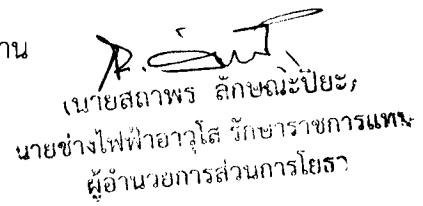 าน
(นายสถาพร ลักษณะปิยะ)
นายช่างไฟฟ้าอาวุโส รักษาราชการแทน
ผู้อำนวยการส่วนการโยธา